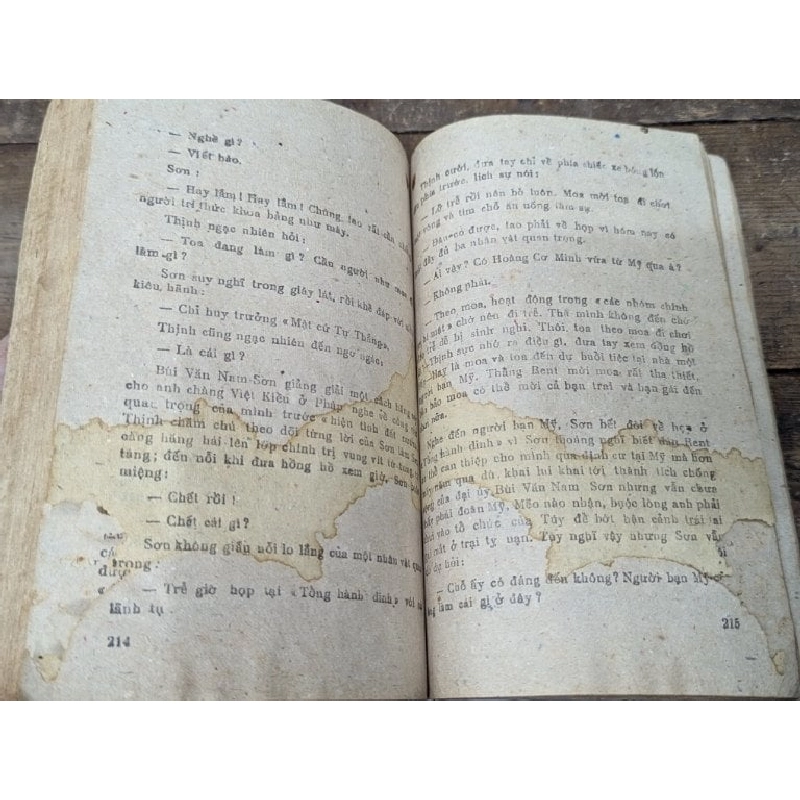 — Nghề gì?
— Viết báo.
Sơn:
— Hay lắm! Hay lắm! Chúng tao rất cần
người trí thức khoa bảng như mày.
Thịnh ngọc nhiên hỏi:
— Toa đang làm gì? Cần người như moa
làm gì?
Sơn suy nghĩ trong giây lát, rồi khẽ đáp với
kiêu hãnh:
— Chỉ huy trưởng «Mật cứ Tự Thắng».
Thịnh cũng ngạc nhiên đến ngơ ngác:
— Là cái gì?
Bùi Văn Nam Sơn giảng giải một cách
cho anh chàng Việt Kiều ở Pháp nghe về công
quan trọng của mình trước «hiện tình đất nước».
Thịnh chăm chú theo dõi từng lời của Sơn làm Sơn
càng hăng hái lên lớp chính trị vung vít
tảng; đến nỗi khi đưa đồng hồ xem giờ, Sơn
miệng:
— Chết rồi!
— Chết cái gì?
Sơn không giấu nổi lo lắng của một nhân vật quan
trọng:
— Trễ giờ họp tại «Tổng hành dinh» với
lãnh tụ.
214
Thịnh cười, đưa tay chỉ về phía chiếc xe bóng lộn
phía trước, lịch sự nói:
— Lỡ trễ rồi nên bỏ luôn. Moa mời toa đi chơi
vòng và tìm chỗ ăn uống tâm sự.
— Đâu có được, tao phải về họp vì hôm nay có
đầy đủ ba nhân vật quan trọng.
— Ai vậy? Có Hoàng Cơ Minh vừa từ Mỹ qua à?
— Không phải.
— Theo moa, hoạt động trong «các nhóm chính
bí mật» chớ nên đi trễ. Thà mình không đến chớ
trễ dễ bị sinh nghi. Thôi, toa theo moa đi chơi
Thịnh sực nhớ ra điều gì, đưa tay xem đồng hồ
Hay là moa và toa đến dự buổi tiệc tại nhà một
người bạn Mỹ. Thằng Bent mời moa rất tha thiết.
bảo moa có thể mời cả bạn trai và bạn gái đến
nữa.
Nghe đến người bạn Mỹ, Sơn hết đòi về họp ở
«Tổng hành dinh» vì Sơn thoáng nghĩ biết đâu Bent
thể can thiệp cho mình qua định cư tại Mỹ mà hơn
năm qua dù khai lui khai tới thành tích chống
của đại úy Bùi Văn Nam Sơn nhưng vẫn chưa
phái đoàn Mỹ, Mẽo nào nhận, buộc lòng anh phải
vào tổ chức của Túy để bớt bận cảnh trại
mắt ở trại tỵ nạn. Tuy nghĩ vậy nhưng Sơn vẫn
dự hỏi:
— Chỗ ấy có đáng đến không? Người bạn Mỹ
làm cái gì ở đây?
215